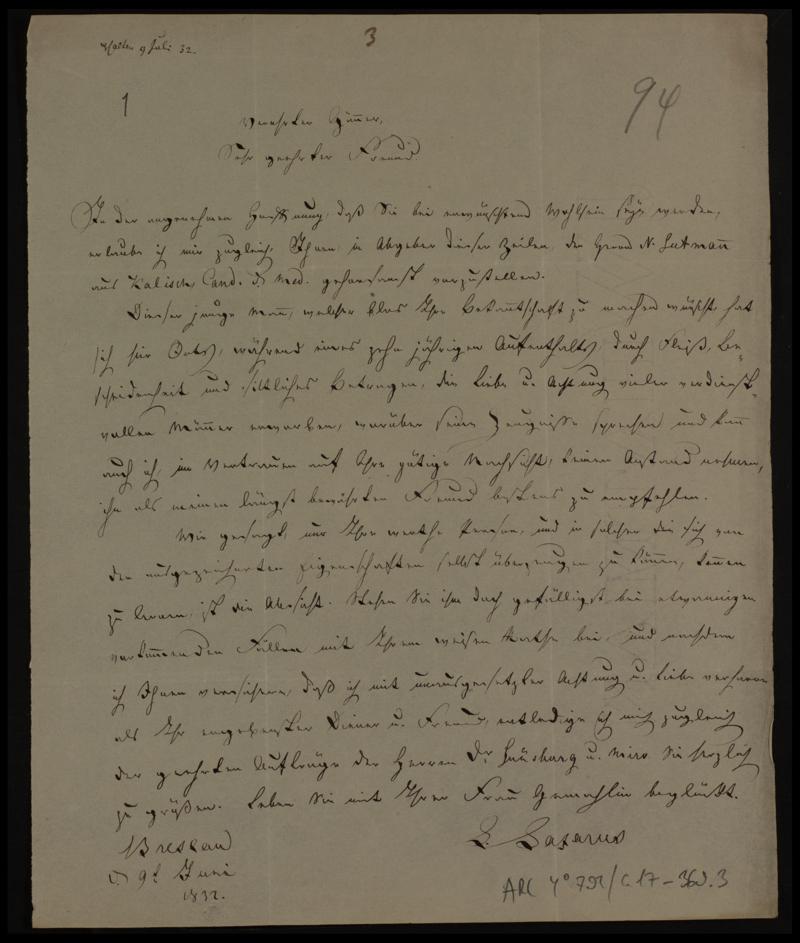 9 Juli 32.
3
1
94
Verehrter Gönner,
Sehr geehrter Freund!
In der angenehmen Hoffnung, daß Sie bei erwünschtem Wohlsein seyn werden,
erlaube ich mir zugleich, Ihnen in Abgeber dieser Zeilen, den Herrn N. Gutmann
aus Kalisch, Cand. d. Med. gehorsamst vorzustellen.
Dieser junge Mann, welcher blos Ihre Bekanntschaft zu machen wünscht, hat
sich hier Orts, während eines zehn jährigen Aufenthalts, durch Fleiß, Be-
scheidenheit und sittliches Betragen, die Liebe u. Achtung vieler verdienst-
vollen Männer erworben, worüber seine Zeugnisse sprechen und kann
auch ich, im Vertrauen auf Ihre gütige Nachsicht, keinen Anstand nehmen,
ihn als meinen längst bewährten Freund bestens zu empfehlen.
Wie gesagt, nur Ihre werthe Person, und in solcher die sich von
den ausgezeichneten Eigenschaften selbst überzeugen zu können, kennen
zu lernen, ist die Absicht. Stehen Sie ihm doch gefälligst bei etwannigen
vorkommenden Fällen mit Ihrem weisen Rathe bei, und nachdem
ich Ihnen versichere, daß ich mit unausgesetzter Achtung u. Liebe verharre
als Ihr ergebenster Diener u. Freund, entledige ich mich zugleich
der geehrten Aufträge der Herren Dr. Günsburg u. Miro Sie herzlich
zu grüßen. Leben Sie mit Ihrer Frau Gemahlin beglückt.
Breslau
d. 9t Juni
1832.
L. Lazarus
ARC 4° 792/C.17-360.3